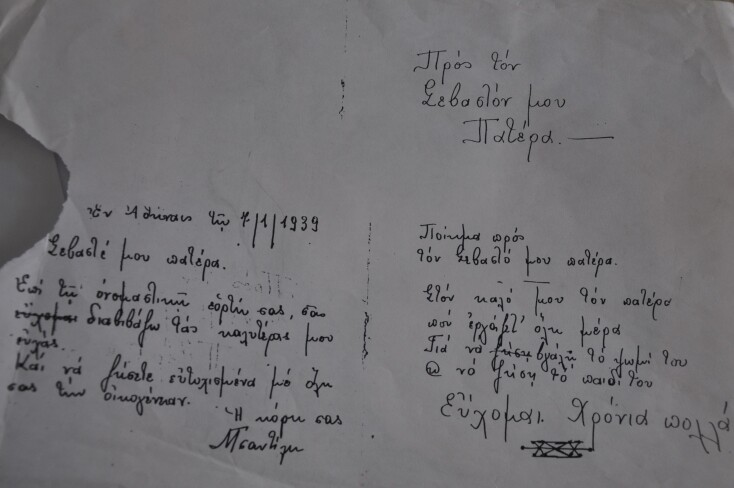 Πρός τόν
Σεβαστόν μου
Πατέρα. —
Ἐν Ἀθήναις τῇ 7/1/1939
Σεβαστέ μου πατέρα.
Ἐπί τῇ ὀνομαστικῇ ἑορτῇ σας, σας
εὔχομαι διαβιβάζω τάς καλυτέρας μου
εὐχάς.
Καί νά ζήσετε εὐτυχισμένα μέ ὅλη
σας τήν οἰκογένειαν.
Ἡ κόρη σας
Ποίημα πρός
τόν Σεβαστό μου πατέρα.
Στόν καλό μου τόν πατέρα
πού ἐργάζετ' ὅλη μέρα
Γιά νά βγάλη τό ψωμί του
νά ζήση τό παιδί του
Εὔχομαι Χρόνια πολλά